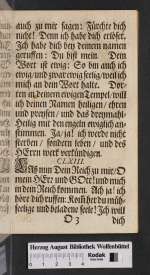 auch zu mir sagen: Fürchte dich
nicht! Denn ich habe dich erlöset.
Ich habe dich bey deinem namen
geruffen: Du bist mein. Dein
Wort ist ewig: So bin auch ich
ewig/und zwar ewig seelig/weil ich
mich an dein Wort halte. Dor-
ten in deinem ewigen Tempel will
ich deinen Namen heiligen/ ehren
und preisen/ und das
heilig mit den engeln ewiglich an-
stimmen. Ja/ ja! ich werde nicht
sterben/ sondern leben/ und des
HErrn werk verkündigen.
CLXIII.
LAß nun Dein Reich zu mir/ O
mein HErr/ und GOtt! und mich
in dein Reich kommen. Ach ja! ich
höre dich ruffen: Kom her du müh-
seelige und beladene seele! Ich will
O 3 dich
Herzog August Bibliothek Wolfenbüttel